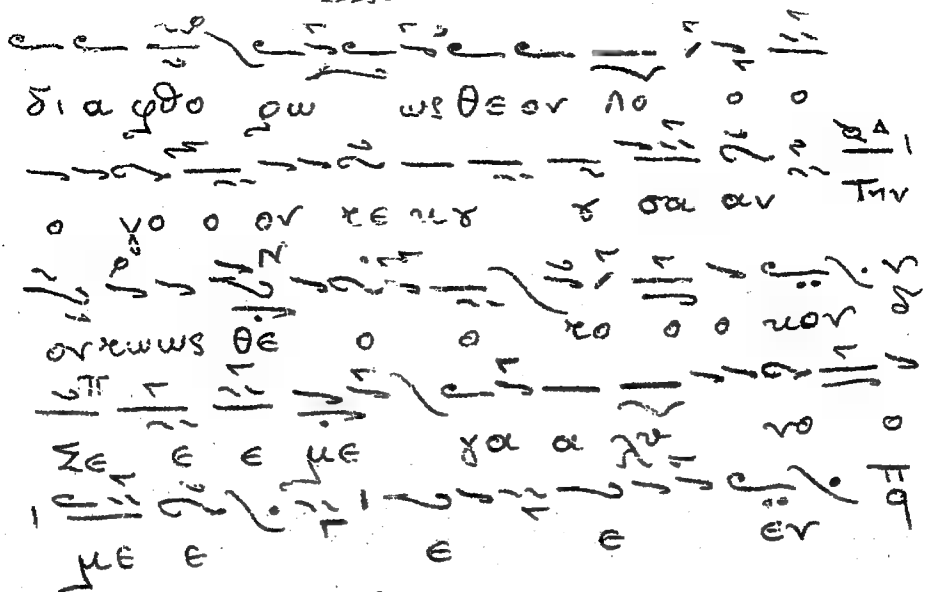 δι α φθο ρω ως θε ον λο ο ο
ο γο ο ον τε κȣ ȣ σα αν Την
οντωως θε ο ο το ο ο κον
Σε ε ε με γα α λυ νο ο
με ε ε ε εν